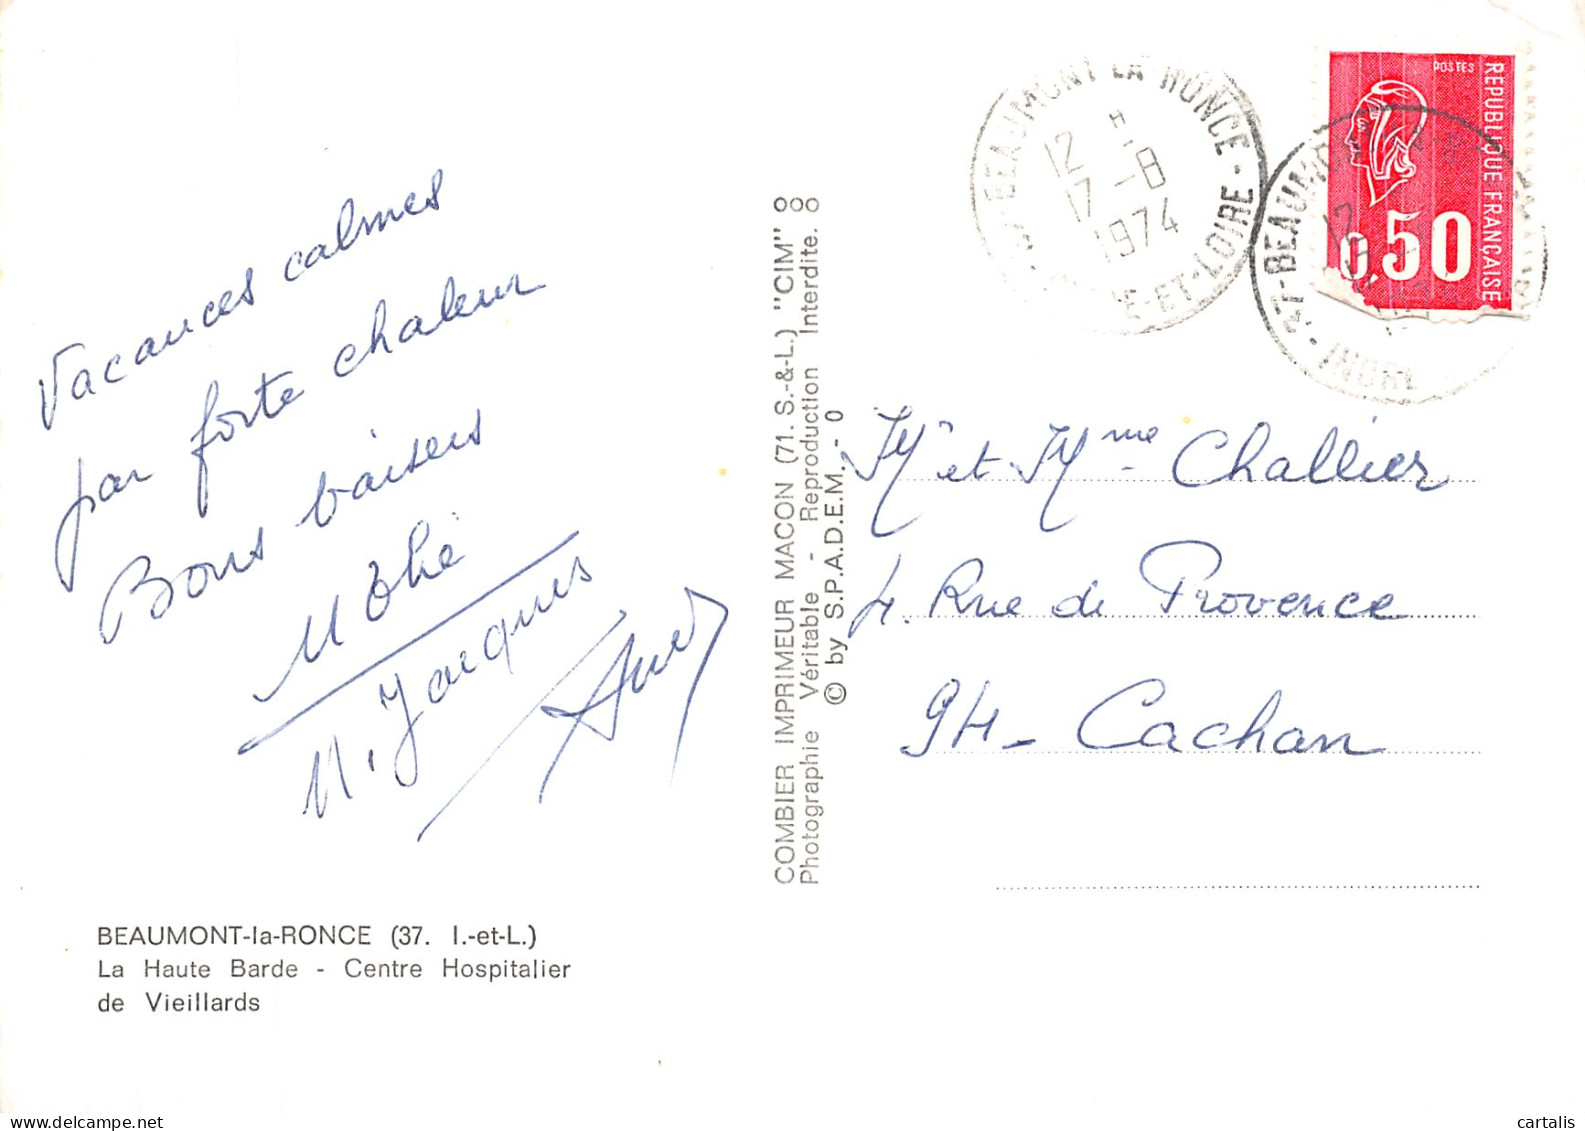 Vacances calmes
par forte chaleur
Bons baisers
M. Jacques
BEAUMONT-la-RONCE (37. I.-et-L.)
La Haute Barde - Centre Hospitalier
de Vieillards
COMBIER IMPRIMEUR MACON (71. S.-&-L.) "CIM"
Photographie Véritable - Reproduction Interdite.
© by S.P.A.D.E.M. - 0
BEAUMONT LA RONCE
12
17 -8
1974
ET-LOIRE
POSTES
REPUBLIQUE FRANCAISE
0,50
37-BEAUMON
12
INDRE
Mr et Mme Challier
4. Rue de Provence
94- Cachan
cartalis.com